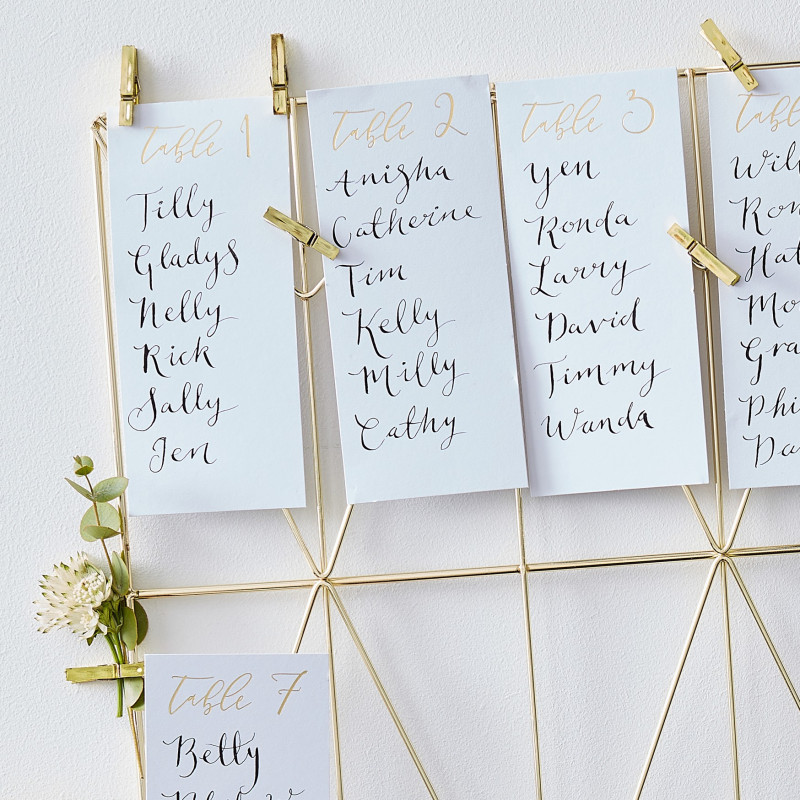 Table 1
Tilly
Gladys
Nelly
Rick
Sally
Jen
Table 2
Anisha
Catherine
Tim
Kelly
Milly
Cathy
Table 3
Yen
Ronda
Larry
David
Timmy
Wanda
Table
Table 7
Betty